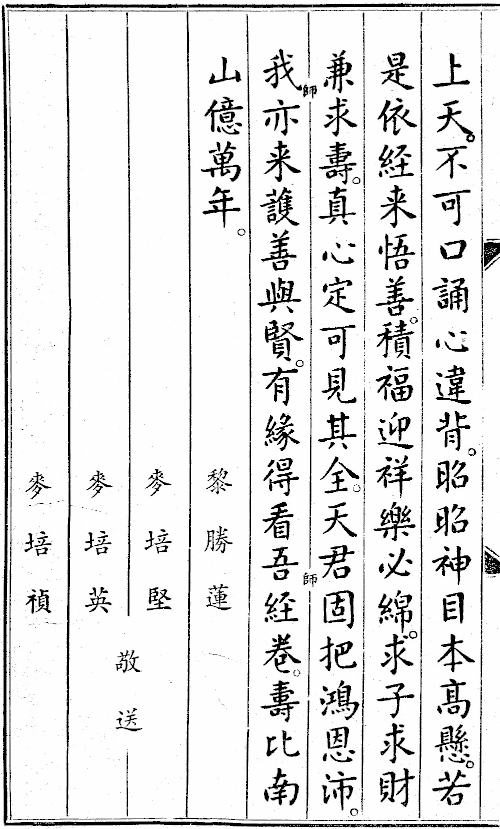 上天。不可口誦心違背。昭昭神目本高懸。若
是依經来悟善。積福迎祥樂必綿。求子求財
兼求壽。真心定可見其全。天君師固把鴻恩沛。
我師亦来護善與賢。有緣得看吾經卷。壽比南
山億萬年。
黎勝蓮
麥培堅
麥培英
麥培禎
敬送